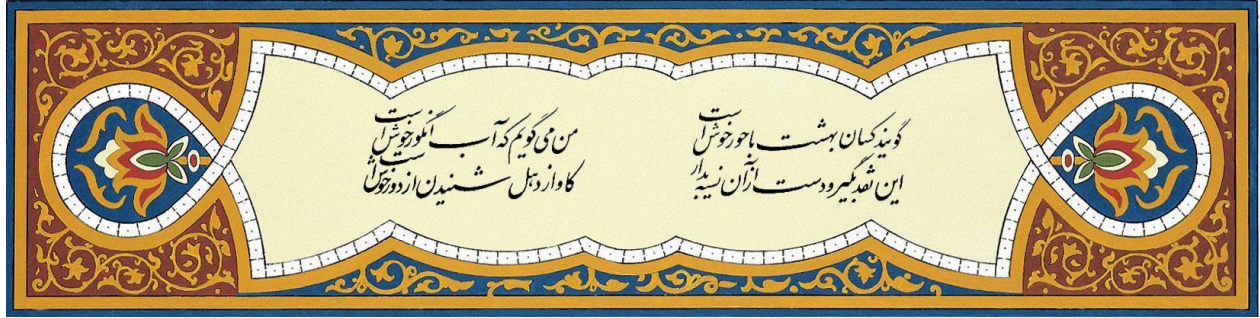 گویند کسان بهشت با حور خوش است من می گویم که آب انگور خوش است
این نقد بگیر و دست از آن نسیه بدار کاواز دهل شنیدن از دور خوش است